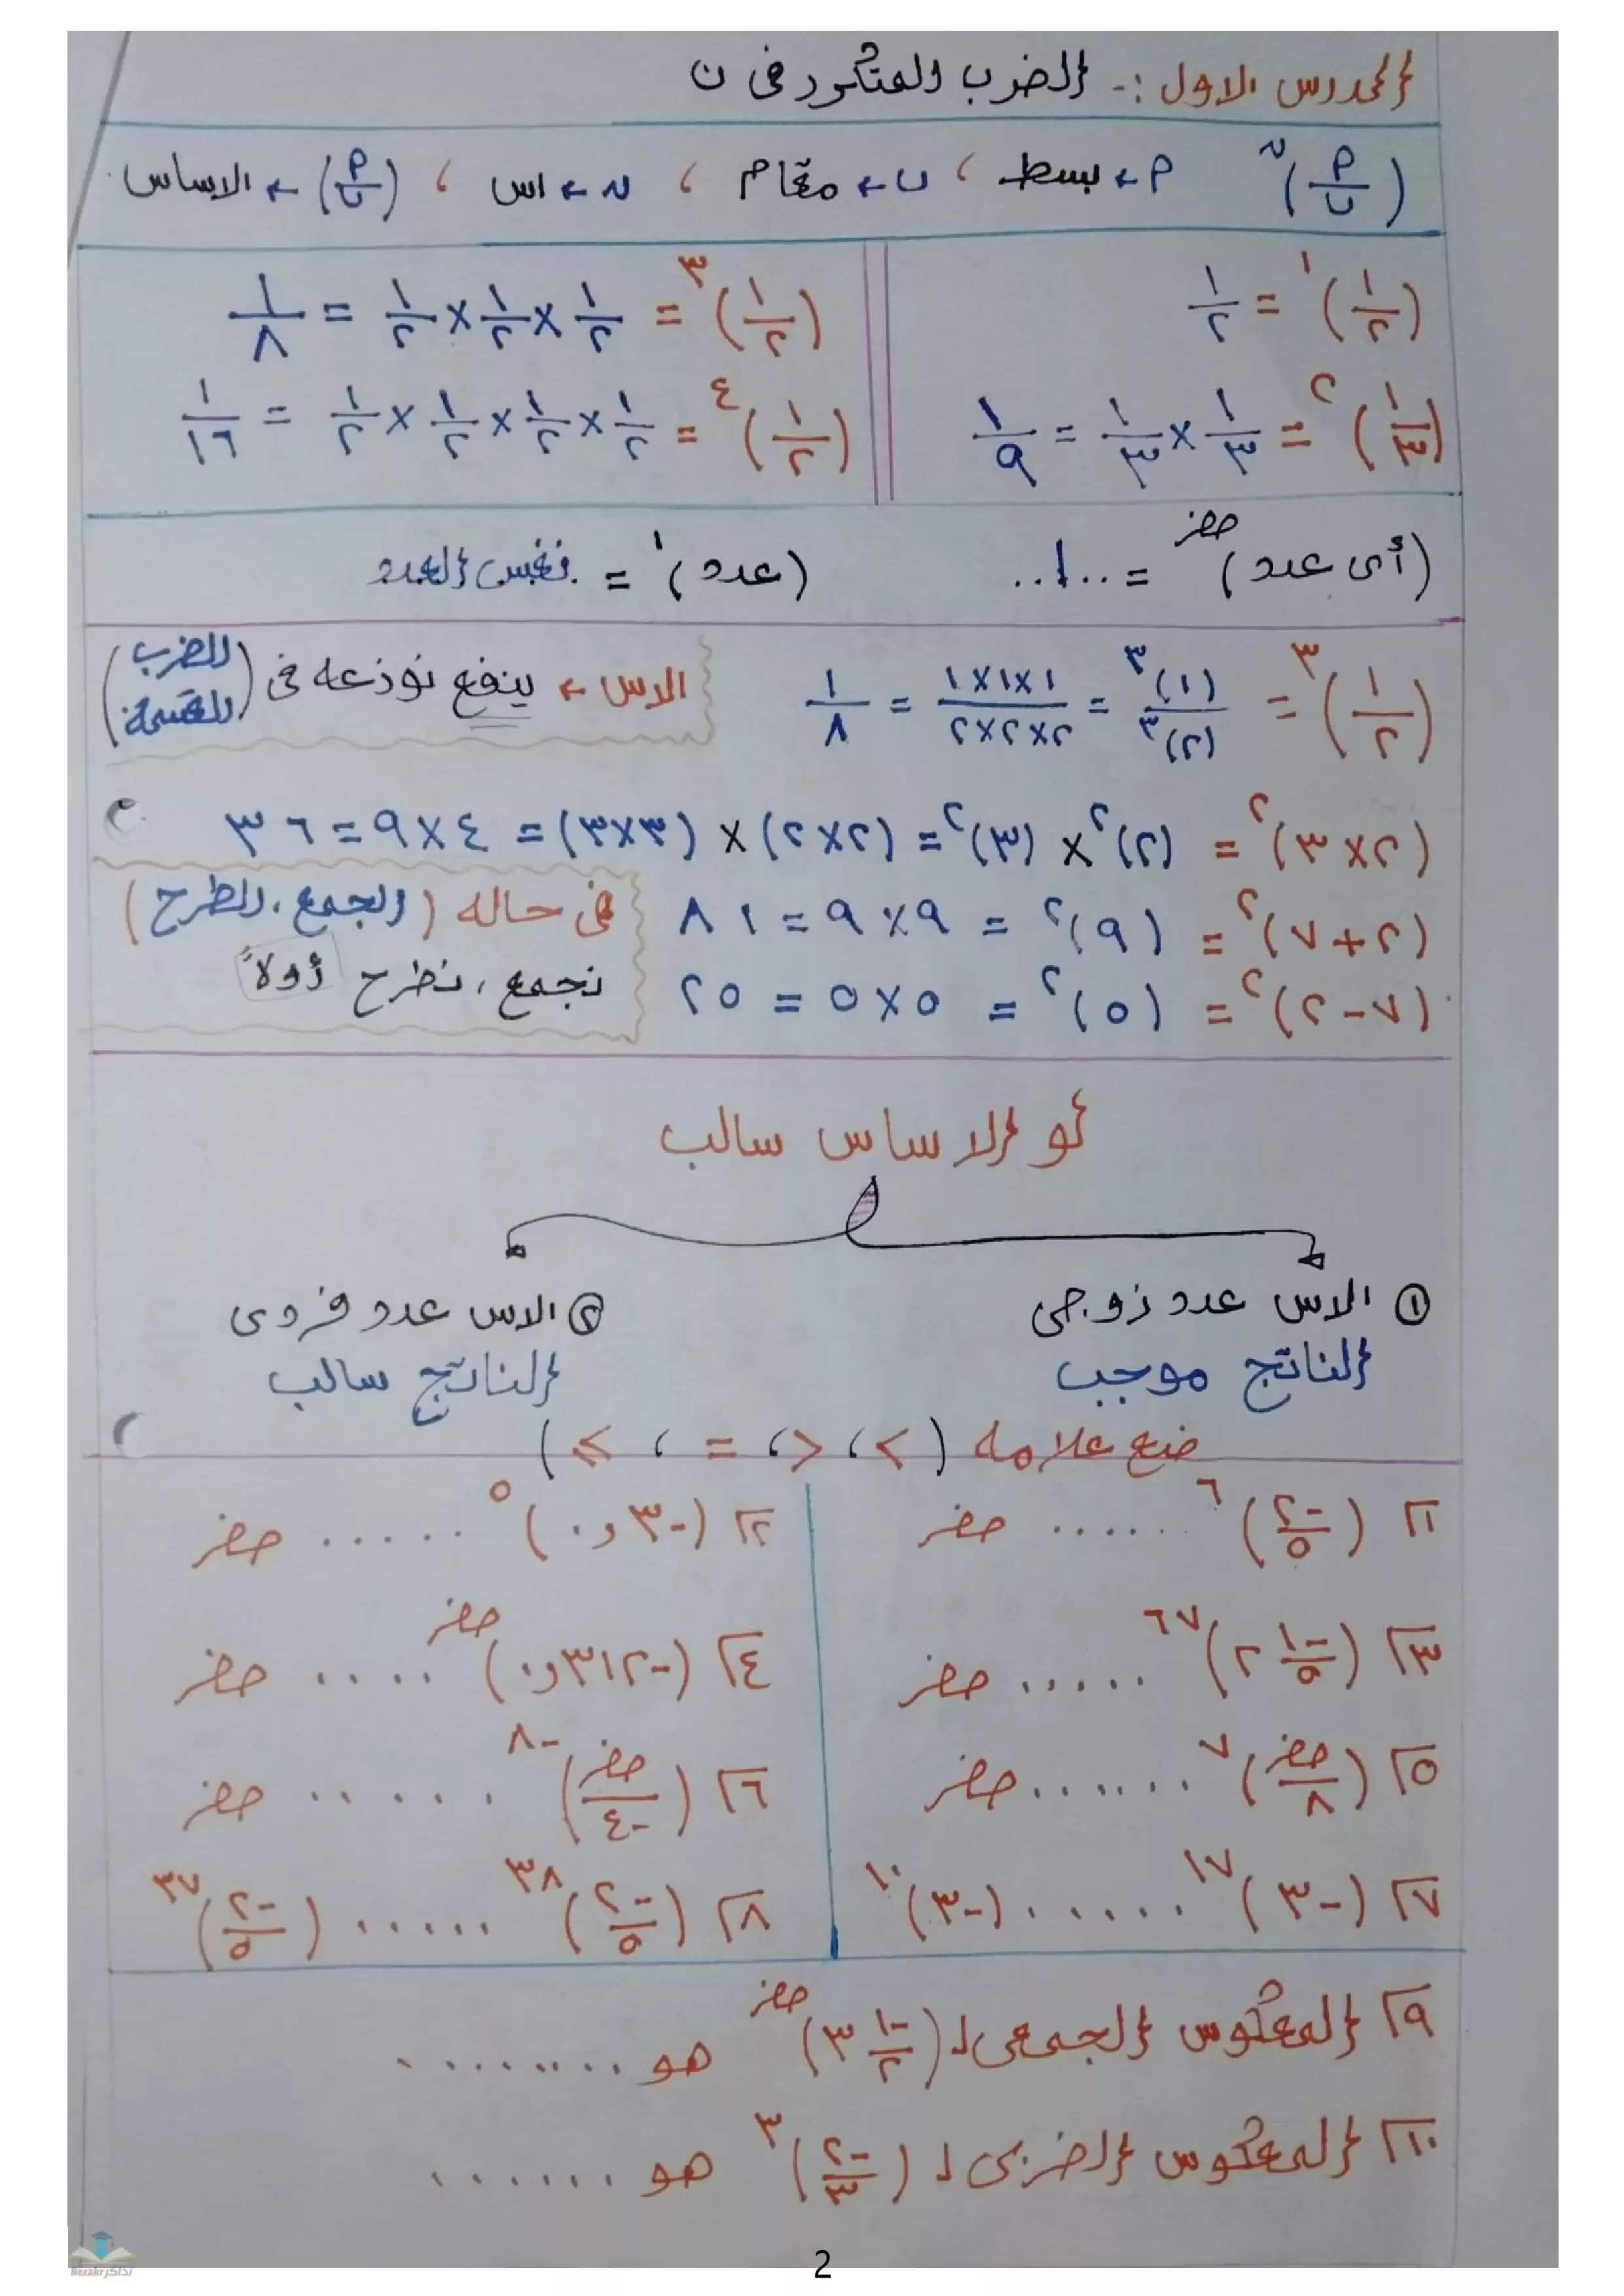 الدرس الاول :- الضرب المتكرر فى ن
(أ/ب)ⁿ أ ← بسط ، ب ← مقام ، ن ← اس ، (أ/ب) ← الاساس
(١/٢)^١ = ١/٢
(١/٣)^٢ = ١/٣ × ١/٣ = ١/٩
(١/٢)^٣ = ١/٢ × ١/٢ × ١/٢ = ١/٨
(١/٢)^٤ = ١/٢ × ١/٢ × ١/٢ × ١/٢ = ١/١٦
(أى عدد)^صفر = ..١..
(عدد)^١ = نفس العدد
(١/٢)^٣ = (١)^٣/(٢)^٣ = ١×١×١/٢×٢×٢ = ١/٨
الاس ← ينفع نوزعه فى (الضرب القسمة)
(٢×٣)^٢ = (٢)^٢ × (٣)^٢ = (٢×٢) × (٣×٣) = ٤×٩ = ٣٦
(٢+٧)^٢ = (٩)^٢ = ٩×٩ = ٨١
(٧-٢)^٢ = (٥)^٢ = ٥×٥ = ٢٥
فى حاله (الجمع، الطرح)
نجمع، نطرح أولاً
لو الاساس سالب
① الاس عدد زوجى
الناتج موجب
② الاس عدد فردى
الناتج سالب
ضع علامه (< ، > ، = ، ≥)
١ (-٢/٥)^٦ ...... صفر
٢ (-٠٫٣)^٥ ...... صفر
٣ (-٢ ١/٥)^٦٧ ..... صفر
٤ (-٠٫٣١٢)^صفر ..... صفر
٥ (صفر/٨)^٧ ...... صفر
٦ (صفر/-٤)^-٨ ..... صفر
٧ (-٣)^١٧ ..... (-٣)^١٠
٨ (-٢/٥)^٣٨ ..... (-٢/٥)^٣٧
٩ المعكوس الجمعى لـ (-٣ ١/٢)^صفر هو ........
١٠ المعكوس الضربى لـ (-٢/٣)^٣ هو ......
نذاكر
Nezakr
2